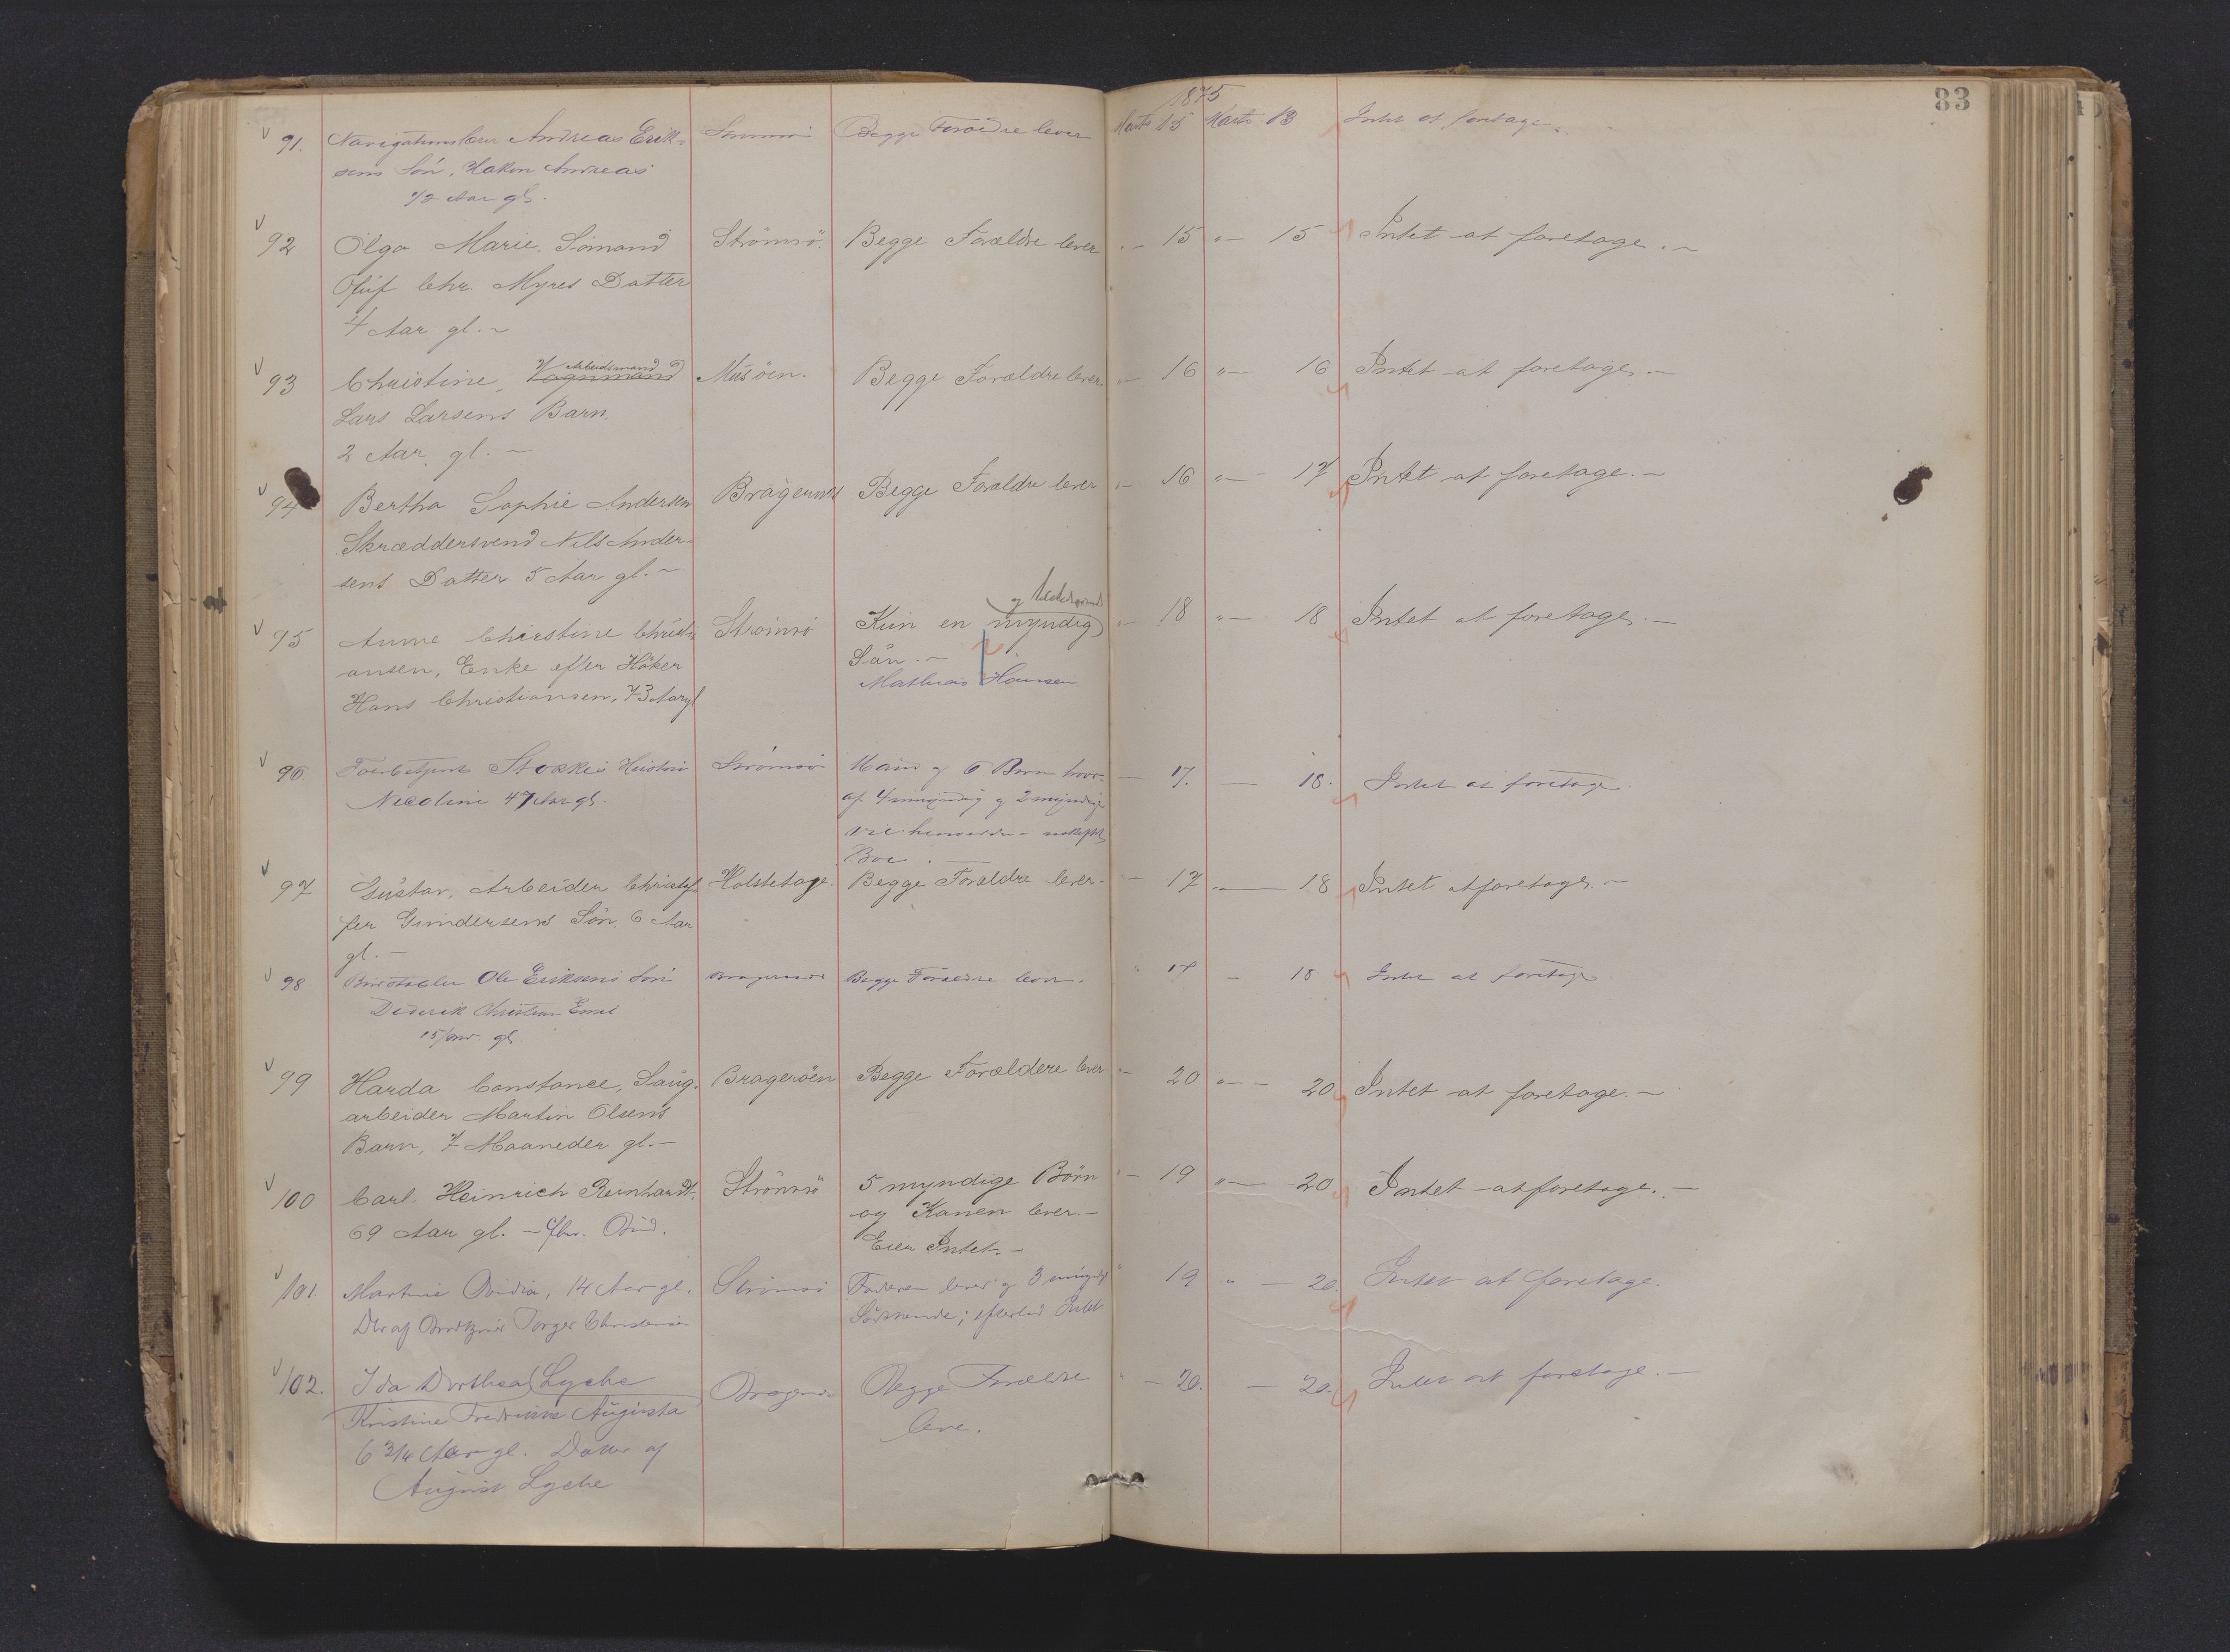 83
1875
91. Andreas Erik- Strømsø Begge Forældre lever Marts 15 Marts 18 Intet at foretage.
sens Sön, Hakon Andreas
1/2 Aar gl.
92 Olga Marie. Sömand Strömsö. Begge Forældre lever „- 15 „- 15 Intet at foretage.-
Oluf Chr. Myres Datter
4 Aar gl.-
93 Christine, Arbeidsmand Müsöen. Begge Forældre lever. „- 16 „- 16 Intet at foretage.-
Lars Larsens Barn,
2 Aar gl.-
94 Bertha Sophie Andersen Bragernes Begge Forældre lever „- 16 „- 17 Intet at foretage.-
Skræddersvend Nils Ander-
sens Datter 5 Aar gl.-
95 Anne Christine Christi- Strömsö Kun en myndig „- 18 „- 18 Intet at foretage.-
ansen, Enke efter Höker Sön.-
Hans Christiansen, 73 Aar gl Mathias Hansen
96. Hustru Strömsö Mand og 6 Børn hvor- - 17. - 18. Intet at foretage.
Nicoline 47 Aar gl. af 4 umyndig og 2 myndige
Boe.
97 Gustav, Arbeider Christof- Holstetage. Begge Forældre lever- - 17 „- 18 Intet at foretage.-
fer Gundersens Sön. 6 Aar
gl.-
98 Ole Eriksens Sön Bragernes Begge Forældre lever. " 17 - 18 Intet at foretage
Dederik Christian Emil
99 Harda Constance, Saug- Bragerøen Begge Forældere lever „- 20 „- - 20 Intet at foretage.-
arbeider Martin Olsens
Barn, 7 Maaneder gl.-
100 Carl Heinrich Reinhardt, Strömsö 5 myndige Börn „- 19 „- 20 Intet at foretage.-
69 Aar gl.- og Konen lever.-
Eier Intet.-
101. Martine Ovidia, 14 Aar gl. Strömsö Faderen lever og 3 " 19 " - 20. Intet at foretage.
Dtr af Torger Christensen Södskende; efterlod Intet
102. Ida Dorthea Lyche Bragernes Begge Forældre " - 20. - 20. Intet at foretage.-
Kristine Fredrikke Augusta leve.
6 3/4 Aar gl. Datter af
August Lyche